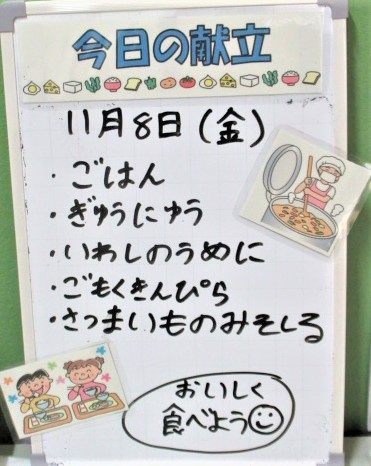 今日の献立
11月8日(金)
・ごはん
・ぎゅうにゅう
・いわしのうめに
・ごもくきんぴら
・さつまいものみそしる
おいしく
食べよう